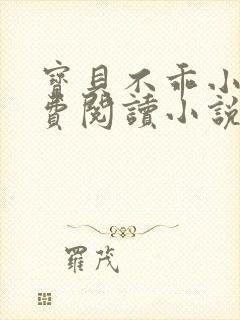 寶貝不乖小
費閱讀小說
羅茂